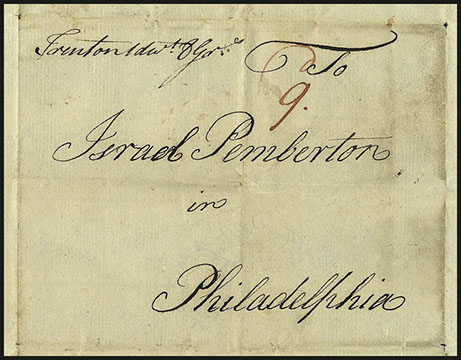 Trenton 1dwt. 8 Grs.
To
9.
Israel Pemberton
in
Philadelphia